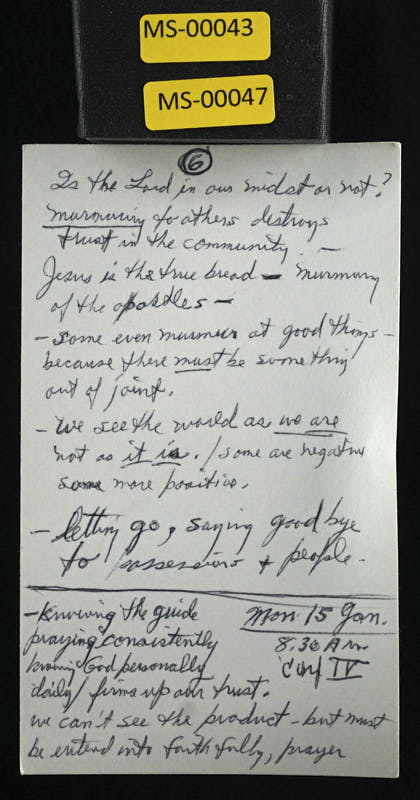 MS-00043
MS-00047
6
Is the Lord in our midst or not?
murmuring to others destroys
trust in the community. -
Jesus is the true bread - murmuring
of the apostles -
- some even murmur at good things -
because there must be something
out of joint.
- we see the world as we are
not as it is. / some are negative
some more positive.
- letting go, saying good bye
to possessions + people.
- Knowing the guide
Mon. 15 Jan.
praying consistently
8:30 A.M.
knowing God personally
Conf IV
daily / firms up our trust.
we can't see the product - but must
be entered into faithfully, prayer